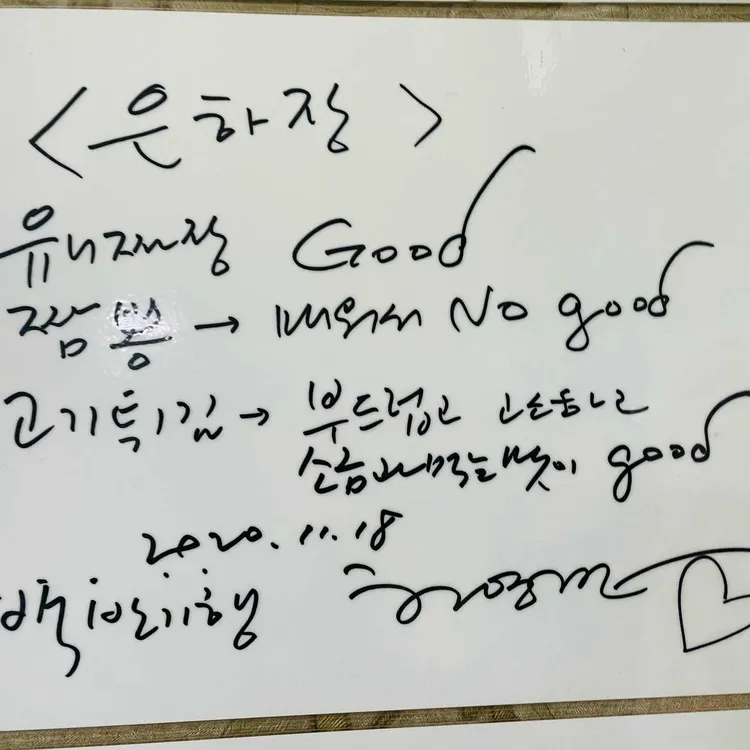 <은하장>
유니짜장 Good
짬뽕 → 매워서 No good
고기튀김 → 부드럽고 고소하고
소금 찍는 맛이 good
2020.11.18
백반기행